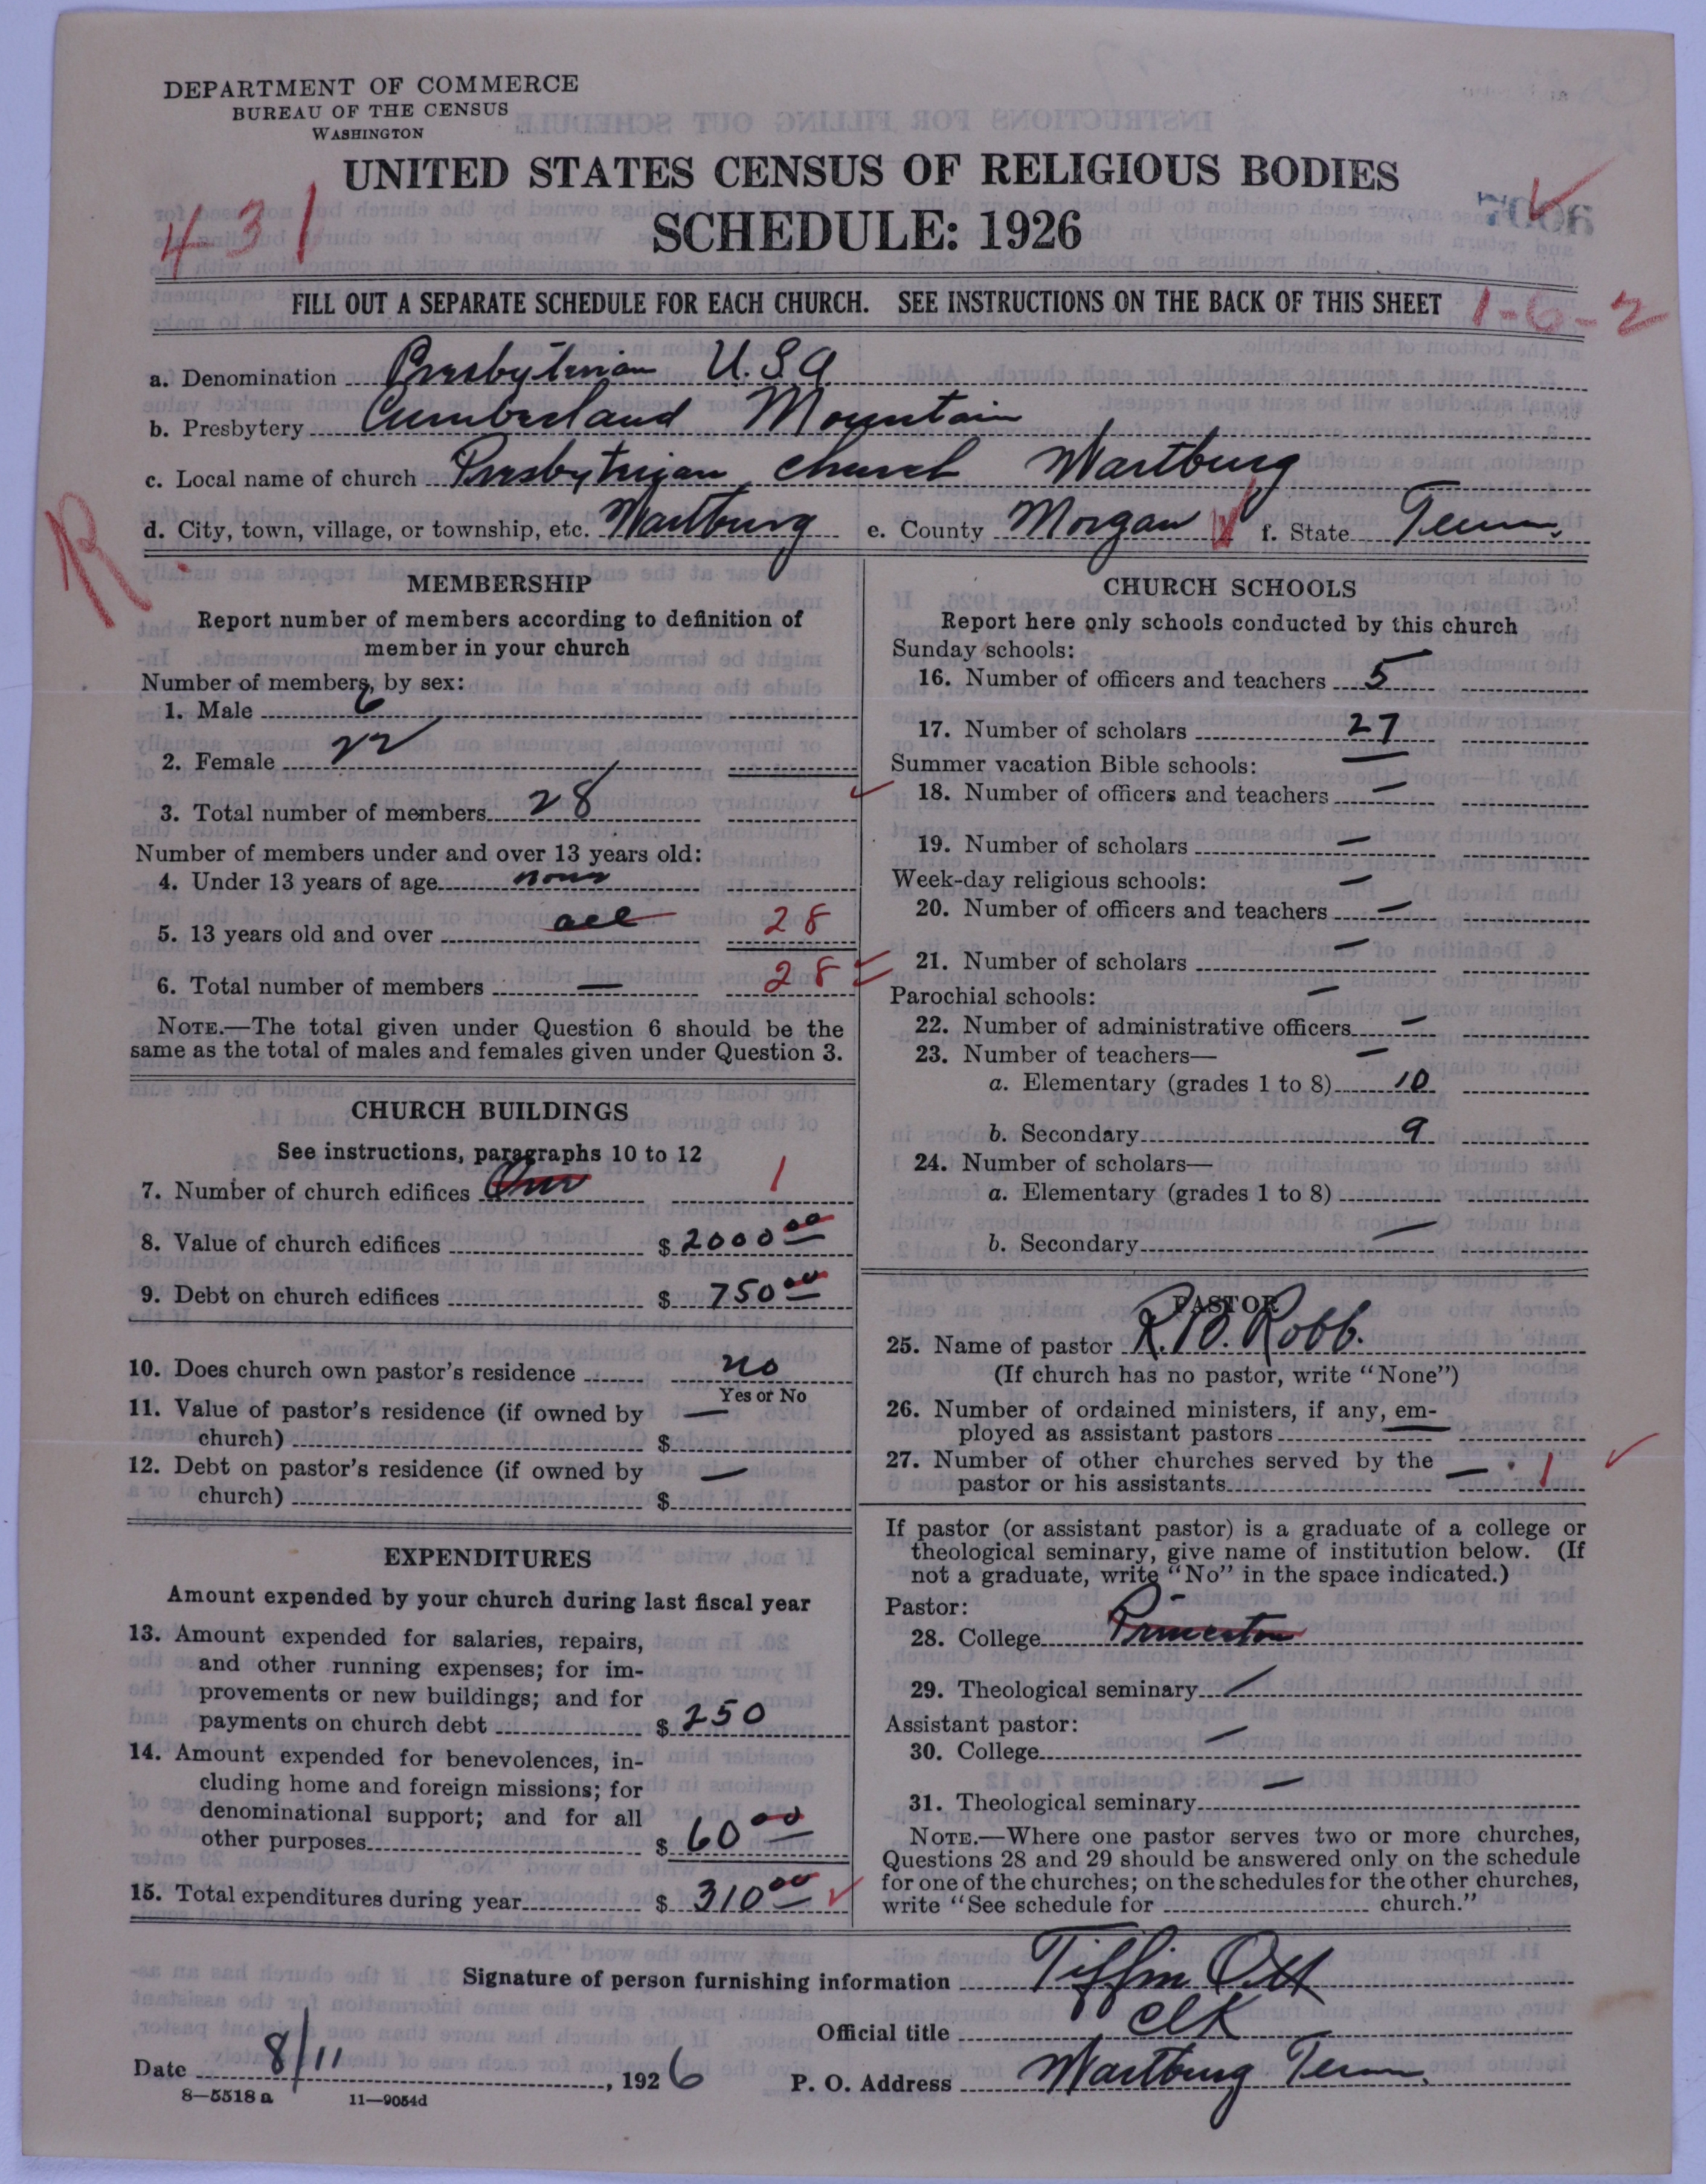 DEPARTMENT OF COMMERCE
BUREAU OF THE CENSUS
WASHINGTON
UNITED STATES CENSUS OF RELIGIOUS BODIES
SCHEDULE: 1926
431
FILL OUT A SEPARATE SCHEDULE FOR EACH CHURCH. SEE INSTRUCTIONS ON THE BACK OF THIS SHEET
1-6-2
a. Denomination Presbyterian U.S.A.
b. Presbytery Cumberland Mountain
c. Local name of church Presbyterian church Wartburg
d. City, town, village, or township, etc. Wartburg e. County Morgan f. State Tenn.
R
MEMBERSHIP
Report number of members according to definition of
member in your church
Number of members, by sex:
1. Male 6
2. Female 22
3. Total number of members 28
Number of members under and over 13 years old:
4. Under 13 years of age none
5. 13 years old and over all 28
6. Total number of members — 28
NOTE.—The total given under Question 6 should be the
same as the total of males and females given under Question 3.
CHURCH BUILDINGS
See instructions, paragraphs 10 to 12
7. Number of church edifices One 1
8. Value of church edifices $ 2000 00
9. Debt on church edifices $ 750 00
10. Does church own pastor's residence no
Yes or No
11. Value of pastor's residence (if owned by —
church) $
12. Debt on pastor's residence (if owned by —
church) $
EXPENDITURES
Amount expended by your church during last fiscal year
13. Amount expended for salaries, repairs,
and other running expenses; for im-
provements or new buildings; and for
payments on church debt $ 250
14. Amount expended for benevolences, in-
cluding home and foreign missions; for
denominational support; and for all
other purposes $ 60 00
15. Total expenditures during year $ 310 00
CHURCH SCHOOLS
Report here only schools conducted by this church
Sunday schools:
16. Number of officers and teachers 5
17. Number of scholars 27
Summer vacation Bible schools: —
18. Number of officers and teachers —
19. Number of scholars —
Week-day religious schools: —
20. Number of officers and teachers —
21. Number of scholars —
Parochial schools: —
22. Number of administrative officers —
23. Number of teachers— —
a. Elementary (grades 1 to 8) 10
b. Secondary 9
24. Number of scholars—
a. Elementary (grades 1 to 8)
b. Secondary —
PASTOR
25. Name of pastor R.B. Robb.
(If church has no pastor, write "None")
26. Number of ordained ministers, if any, em-
ployed as assistant pastors —
27. Number of other churches served by the
pastor or his assistants — 1
If pastor (or assistant pastor) is a graduate of a college or
theological seminary, give name of institution below. (If
not a graduate, write "No" in the space indicated.)
Pastor:
28. College Princeton
29. Theological seminary
Assistant pastor:
30. College —
31. Theological seminary —
NOTE.—Where one pastor serves two or more churches,
Questions 28 and 29 should be answered only on the schedule
for one of the churches; on the schedules for the other churches,
write "See schedule for church."
Signature of person furnishing information Tiffin Ott
Official title Clk
Date 8/11, 1926 P. O. Address Wartburg Tenn.
8—5518 a 11—9054d